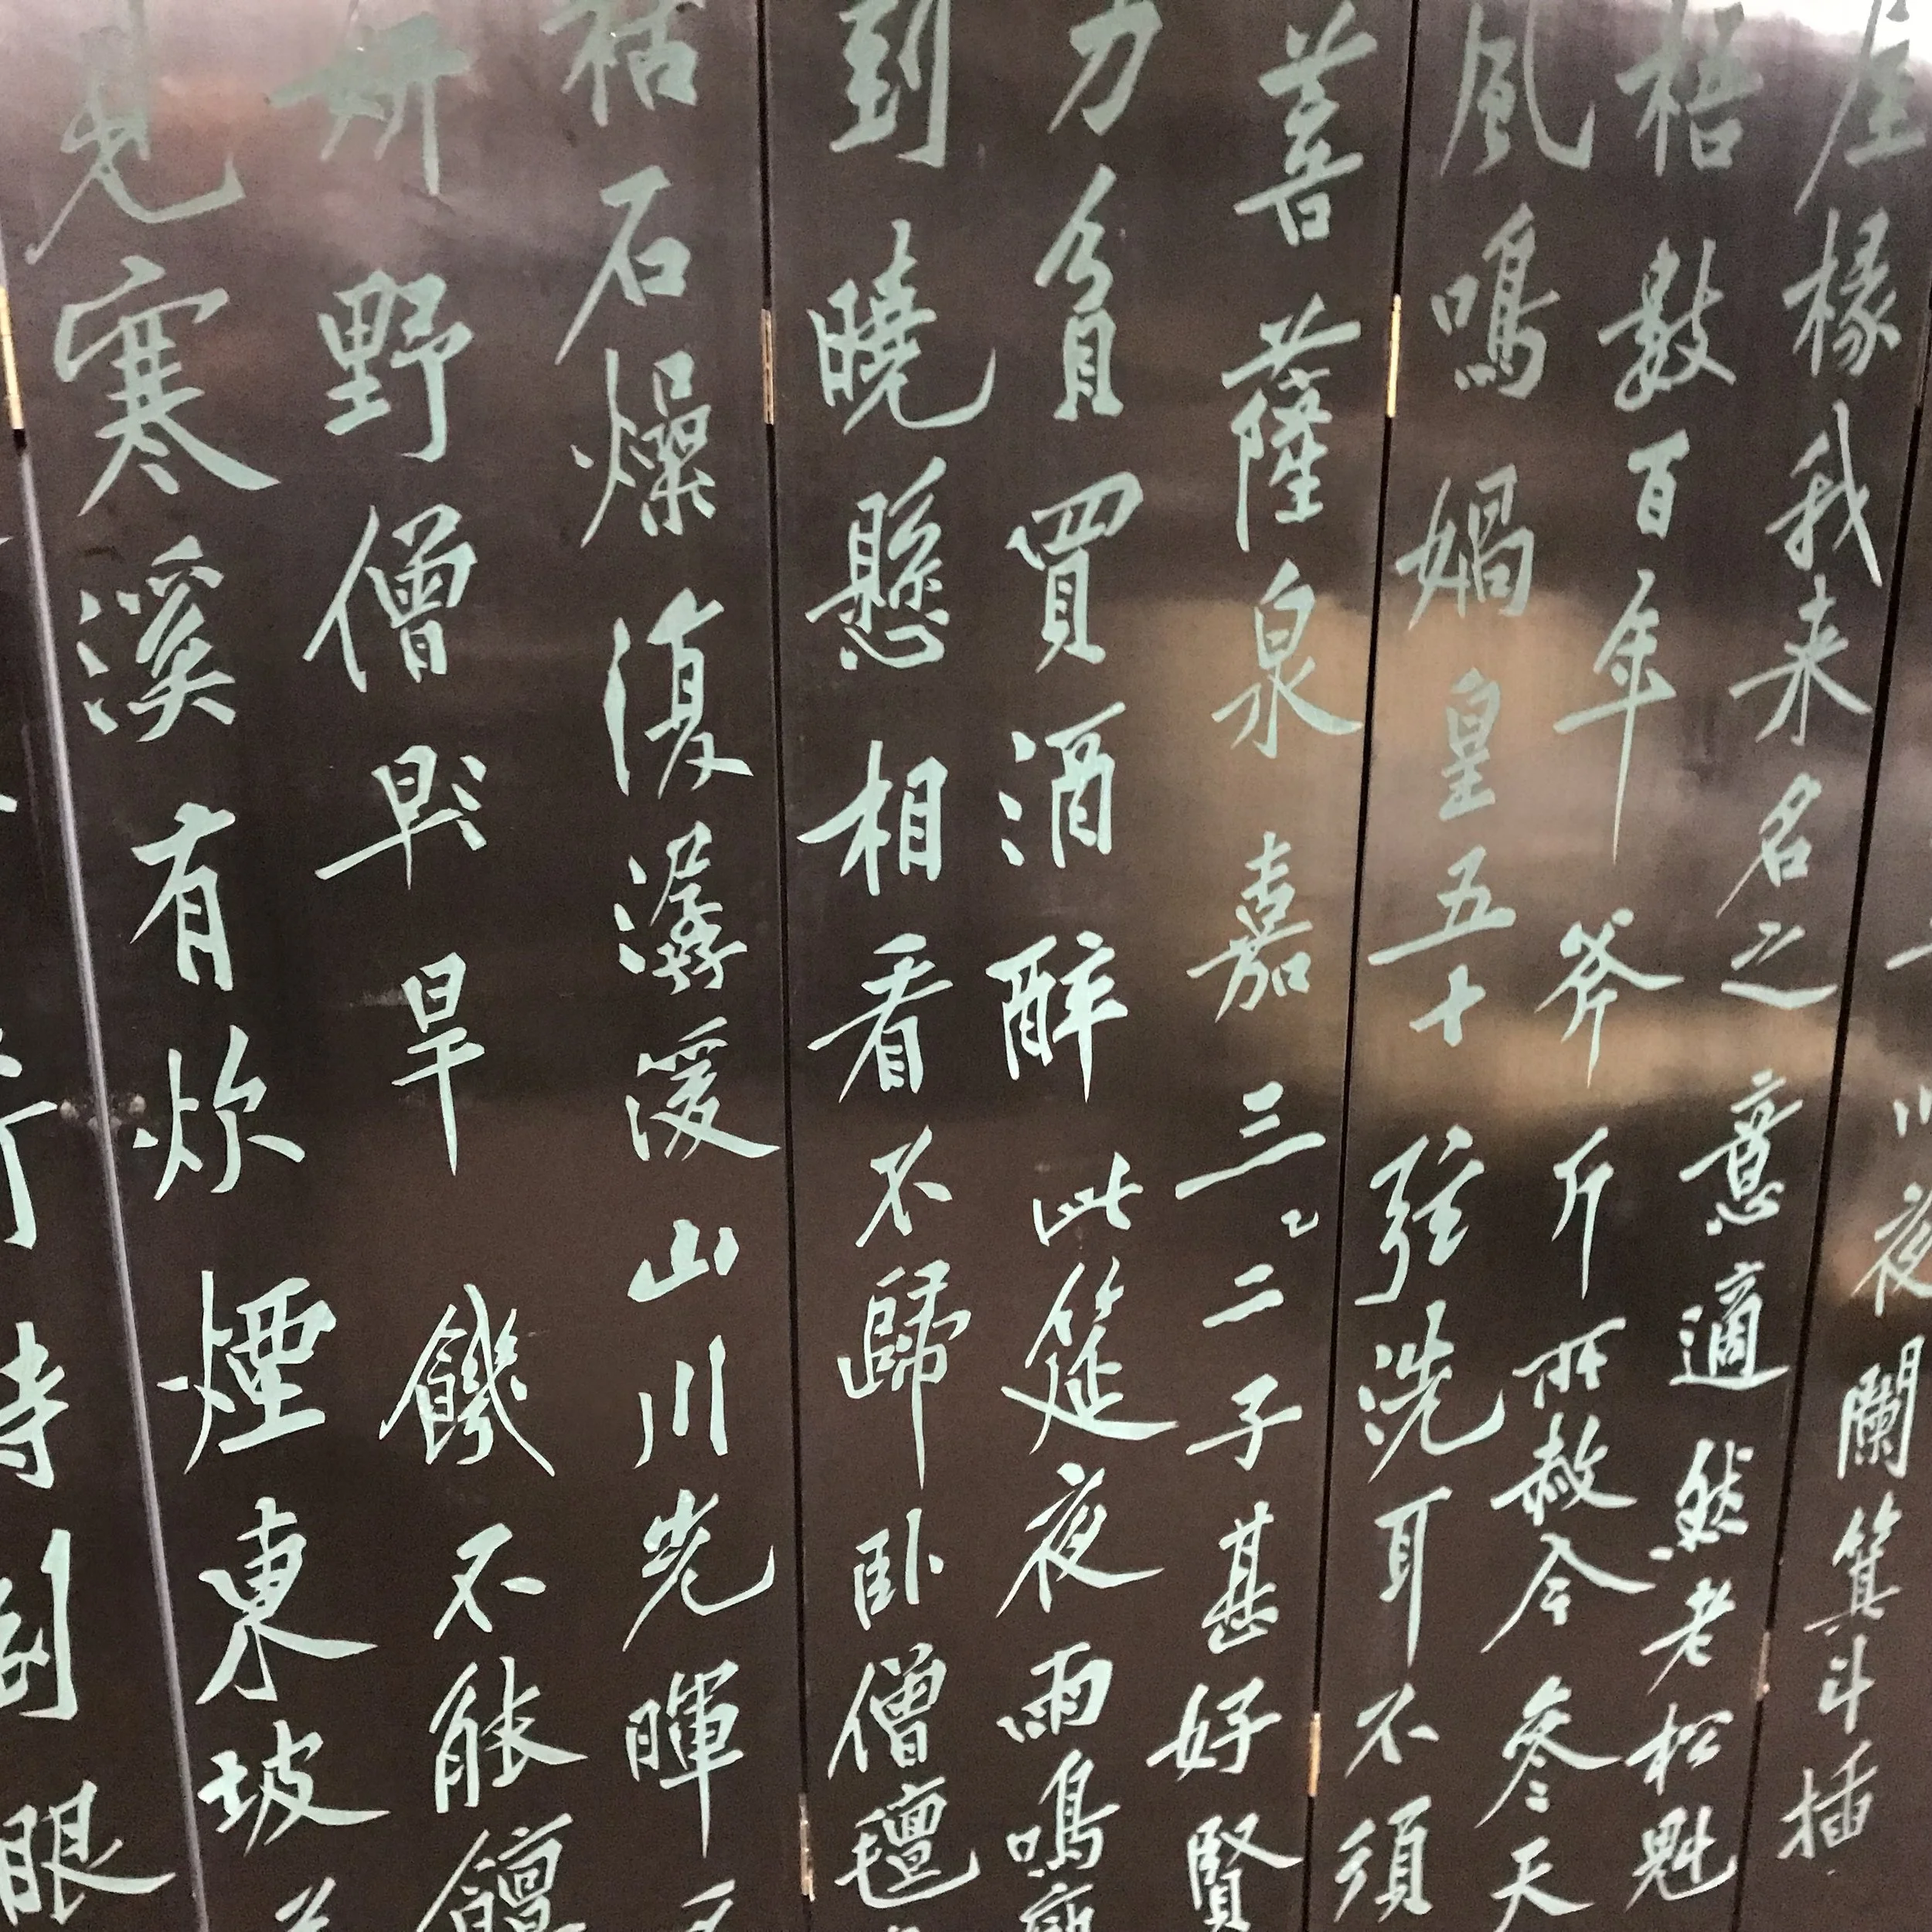 川夜闌箕斗插
屋椽我来名之意適然老松魁
梧數百年斧斤所赦今參天
風鳴媧皇五十弦洗耳不須
菩薩泉嘉三二子甚好賢
力貧買酒醉此筵夜雨鳴廊
到曉懸相看不歸臥僧氊
枯石燥復潺湲山川光暉
妍野僧早旱饑不能饘
見寒溪有炊煙東坡
時到眼